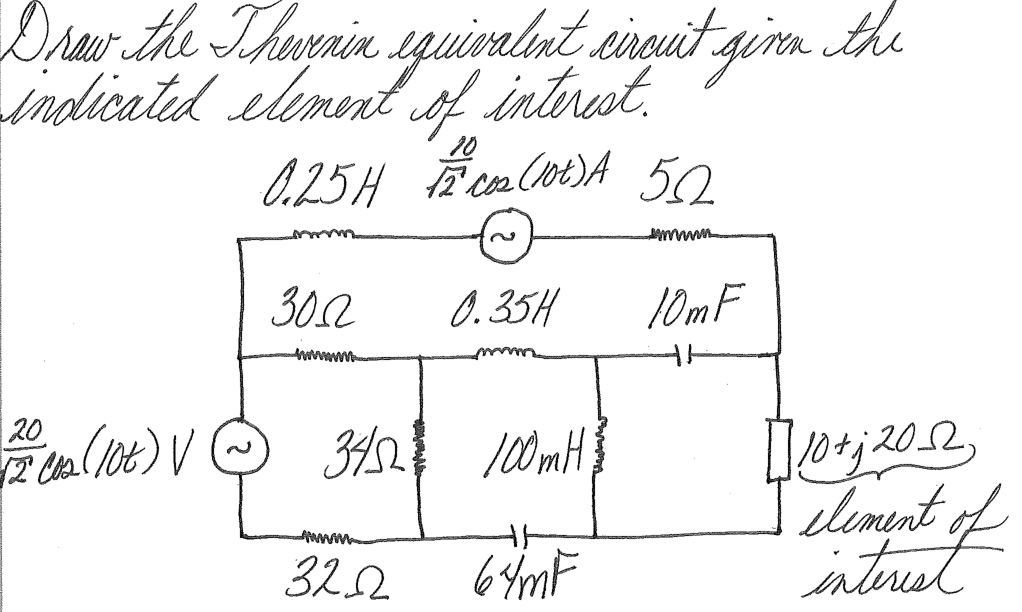 Draw the Thevenin equivalent circuit given the
indicated element of interest.
0.25H 10/√2 cos(10t)A 5Ω
30Ω 0.35H 10mF
20/√2 cos(10t) V 34Ω 100mH 10+j20Ω
element of
interest
32Ω 64mF